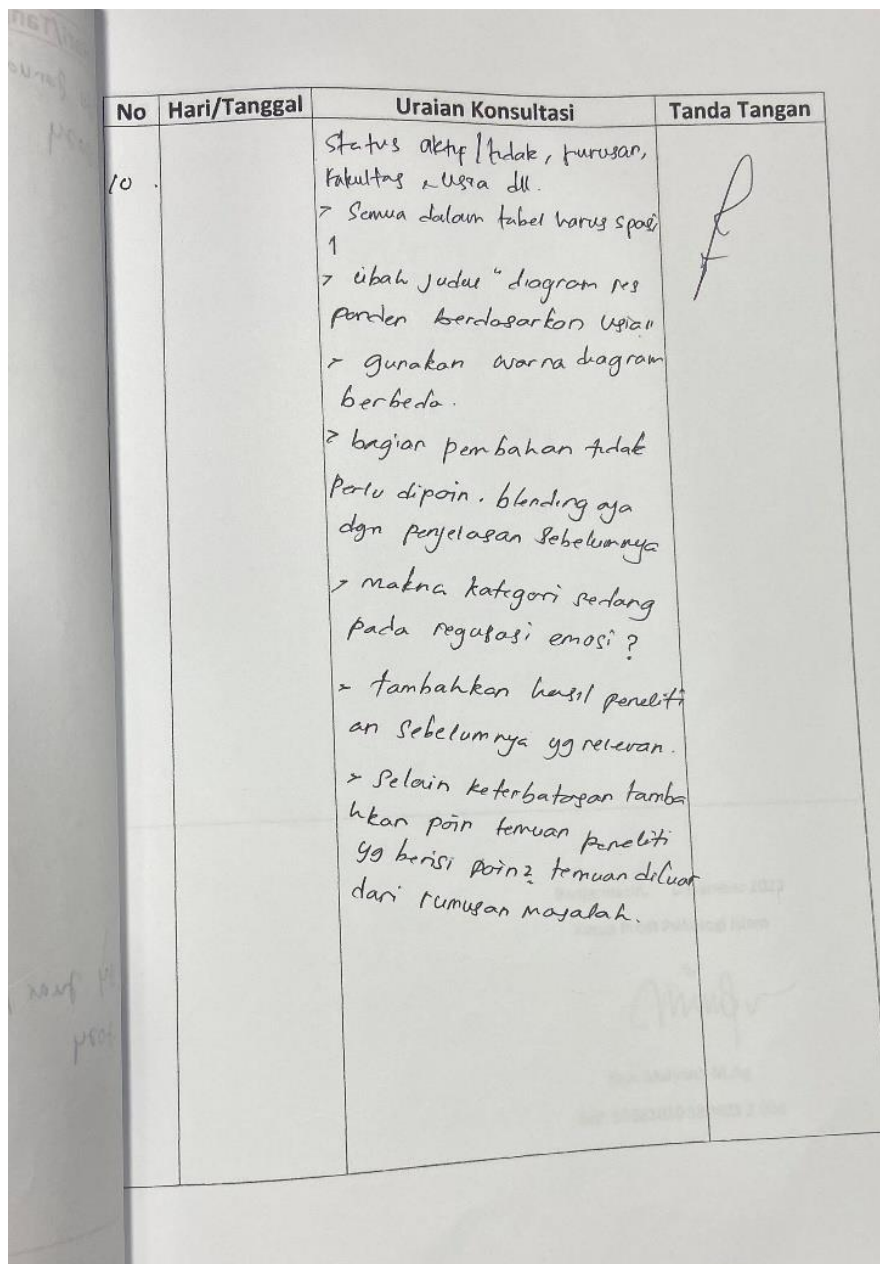 No Hari/Tanggal Uraian Konsultasi Tanda Tangan
10. status aktif/tidak, jurusan,
Fakultas, usia dll.
> Semua dalam tabel harus spasi
1
> ubah judul "diagram res
ponden berdasarkan usia"
> gunakan warna diagram
berbeda.
> bagian pembahan tidak
Perlu dipoin. blending aja
dgn penjelasan sebelumnya
> makna kategori sedang
pada regulasi emosi?
> tambahkan hasil peneliti
an sebelumnya yg relevan.
> Selain keterbatasan tamba
hkan poin temuan peneliti
yg berisi poin2 temuan diluar
dari rumusan masalah.